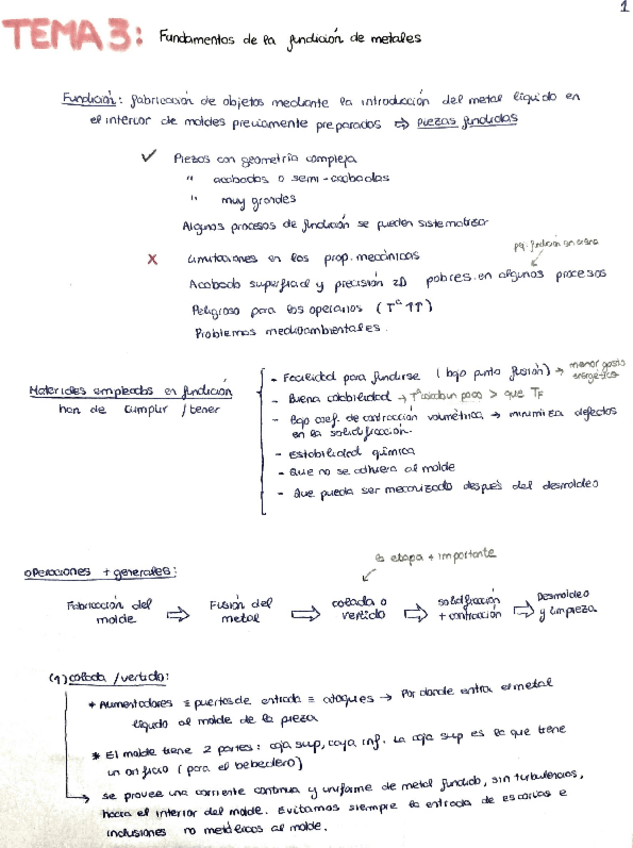 1
TEMA 3: Fundamentos de la fundición de metales
Fundición: fabricación de objetos mediante la introducción del metal líquido en
el interior de moldes previamente preparados ⇨ piezas fundidas
✓ Piezas con geometría compleja
" acabadas o semi-acabadas
" muy grandes
Algunos procesos de fundición se pueden sistematizar
X Limitaciones en las prop. mecánicas
pej. fundición en arena
Acabado superficial y precisión 2D pobres en algunos procesos
Peligroso para los operarios (Tª ↑↑)
Problemas medioambientales.
Materiales empleados en fundición
han de cumplir / tener
- Facilidad para fundirse (bajo punto fusión) → menor gasto
energético
- Buena colabilidad → Tª colada un poco > que TF
- Bajo coef. de contracción volumétrica → minimiza defectos
en la solidificación.
- Estabilidad química
- Que no se adhiera al molde
- Que pueda ser mecanizado después del desmoldeo
es etapa + importante
Operaciones + generales:
Fabricación del
molde ⇨ Fusión del
metal ⇨ colada o
vertido ⇨ solidificación
+ contracción ⇨ Desmoldeo
y limpieza
(1) colada / vertido:
* Alimentadores ≡ puertas de entrada ≡ ataques → Por donde entra el metal
líquido al molde de la pieza
* El molde tiene 2 partes: caja sup, caja inf. La caja sup es la que tiene
un orificio (para el bebedero)
se provee una corriente continua y uniforme de metal fundido, sin turbulencias,
hacia el interior del molde. Evitamos siempre la entrada de escorias e
inclusiones no metálicas al molde.